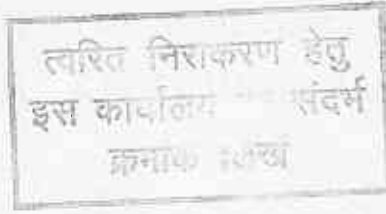 त्वरित निराकरण हेतु
इस कार्यालय संदर्भ
क्रमांक